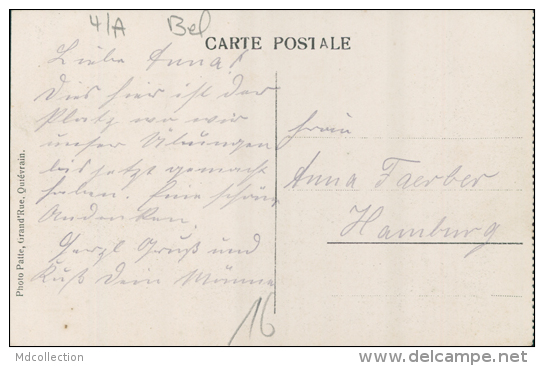 4/A Bel
CARTE POSTALE
Liebe Anna!
Dies hier ist der
Platz wo wir
unser Übungen
bis jetzt gemacht
haben. Eine schöne
Andenken.
Herzl Gruß und
Kuß Dein Männe
Frau
Anna Faerber
Hamburg
16
Photo Patte, Grand'Rue, Quiévrain.
Mdcollection
www.delcampe.net